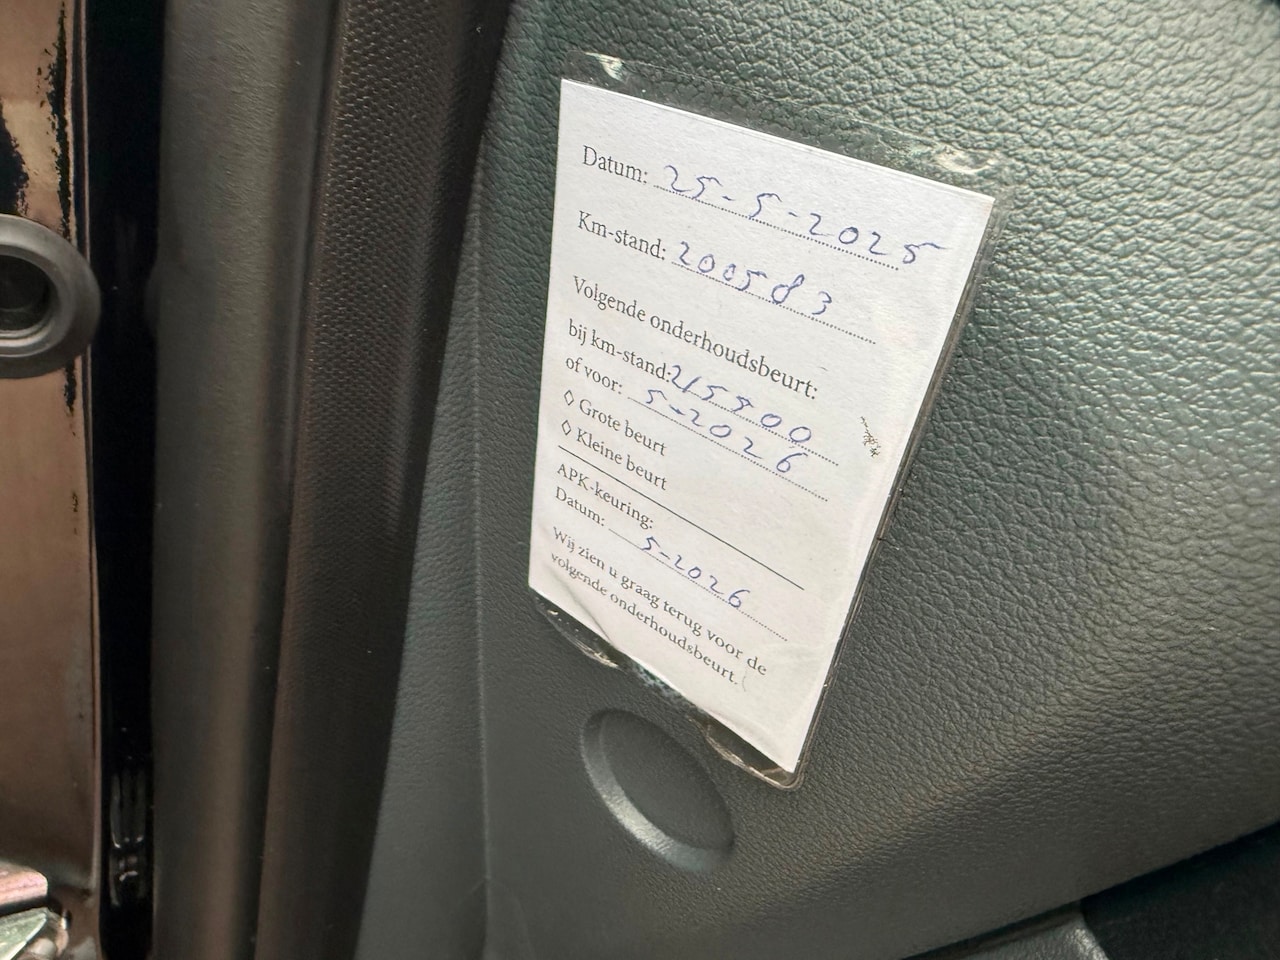 Datum: 25-5-2025
Km-stand: 200583
Volgende onderhoudsbeurt:
bij km-stand: 215500
of voor: 5-2026
◊ Grote beurt
◊ Kleine beurt
APK-keuring:
Datum: 5-2026
Wij zien u graag terug voor de
volgende onderhoudsbeurt.